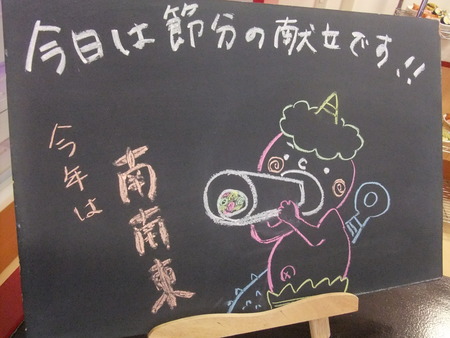 今日は節分の献立です!!
今年は
南南東